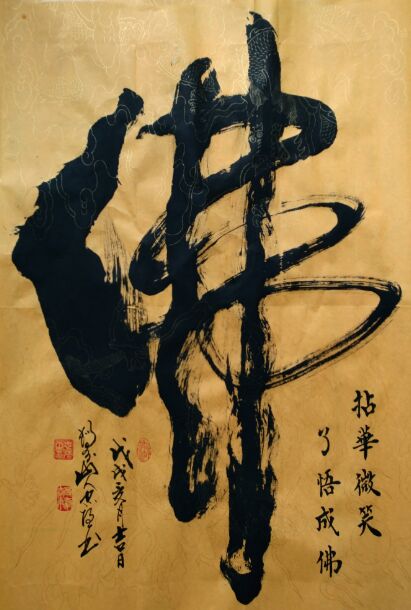 佛
拈華微笑
了悟成佛
戊戌亥月吉日